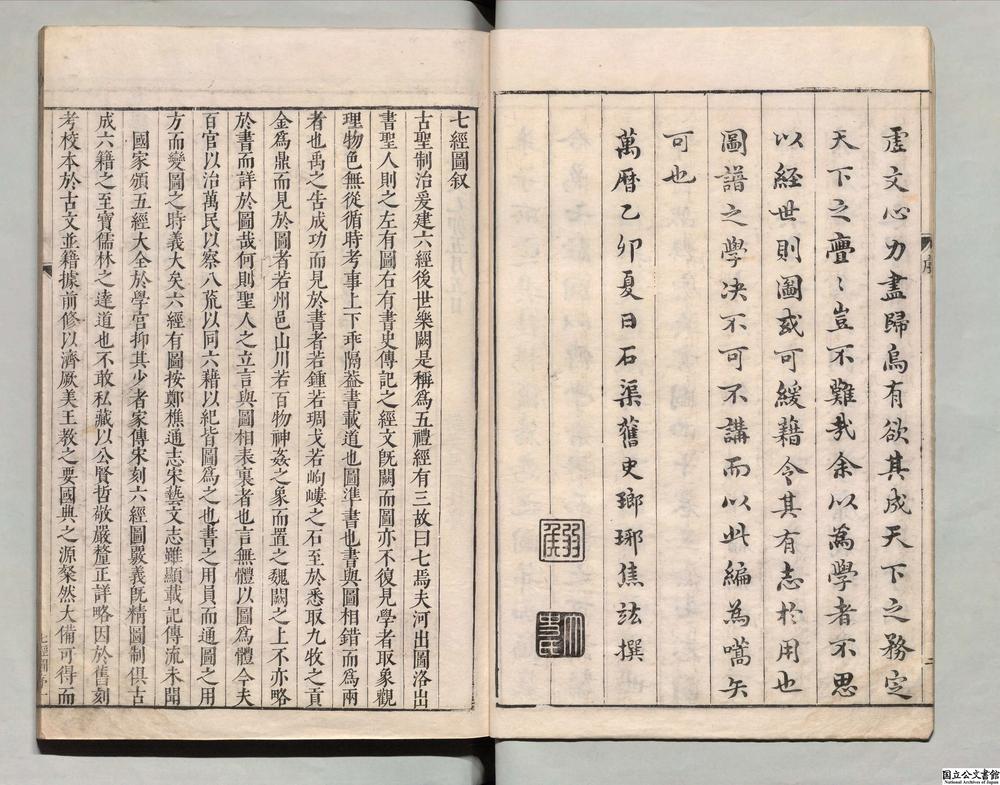 虗文心力盡歸烏有欲其成天下之務定
天下之亹〻豈不難哉余以為學者不思
以経世則圖或可緩藉令其有志於用也
圖譜之學决不可不講而以此編為嚆矢
可也
萬曆乙卯夏日石渠舊史瑯琊焦竑撰
弱侯
太史氏
序
二
七經圖叙
古聖制治爰建六經後世樂闕是稱爲五禮經有三故曰七焉夫河出圖洛出
書聖人則之左有圖右有書史傳記之經文旣闕而圖亦不復見學者取象觀
理物色無從循時考事上下乖隔葢書載道也圖準書也書與圖相錯而爲兩
者也禹之告成功而見於書者若鍾若琱戈若岣嶁之石至於悉取九牧之貢
金爲鼎而見於圖者若州邑山川若百物神姦之象而置之魏闕之上不亦略
於書而詳於圖哉何則聖人之立言與圖相表裏者也言無體以圖爲體今夫
百官以治萬民以察八㐬以同六藉以紀皆圖爲之也書之用員而通圖之用
方而變圖之時義大矣六經有圖按鄭樵通志宋藝文志雖顯載記傳流未聞
國家頒五經大全於學官抑其少者家傳宋刻六經圖嚴義旣精圖制俱古
成六籍之至寶儒林之達道也不敢私藏以公賢哲敬嚴釐正詳略因於舊刻
考校本於古文並籍據前修以濟厥美王教之要國典之源粲然大備可得而
七經圖序一
国立公文書館
National Archives of Japan